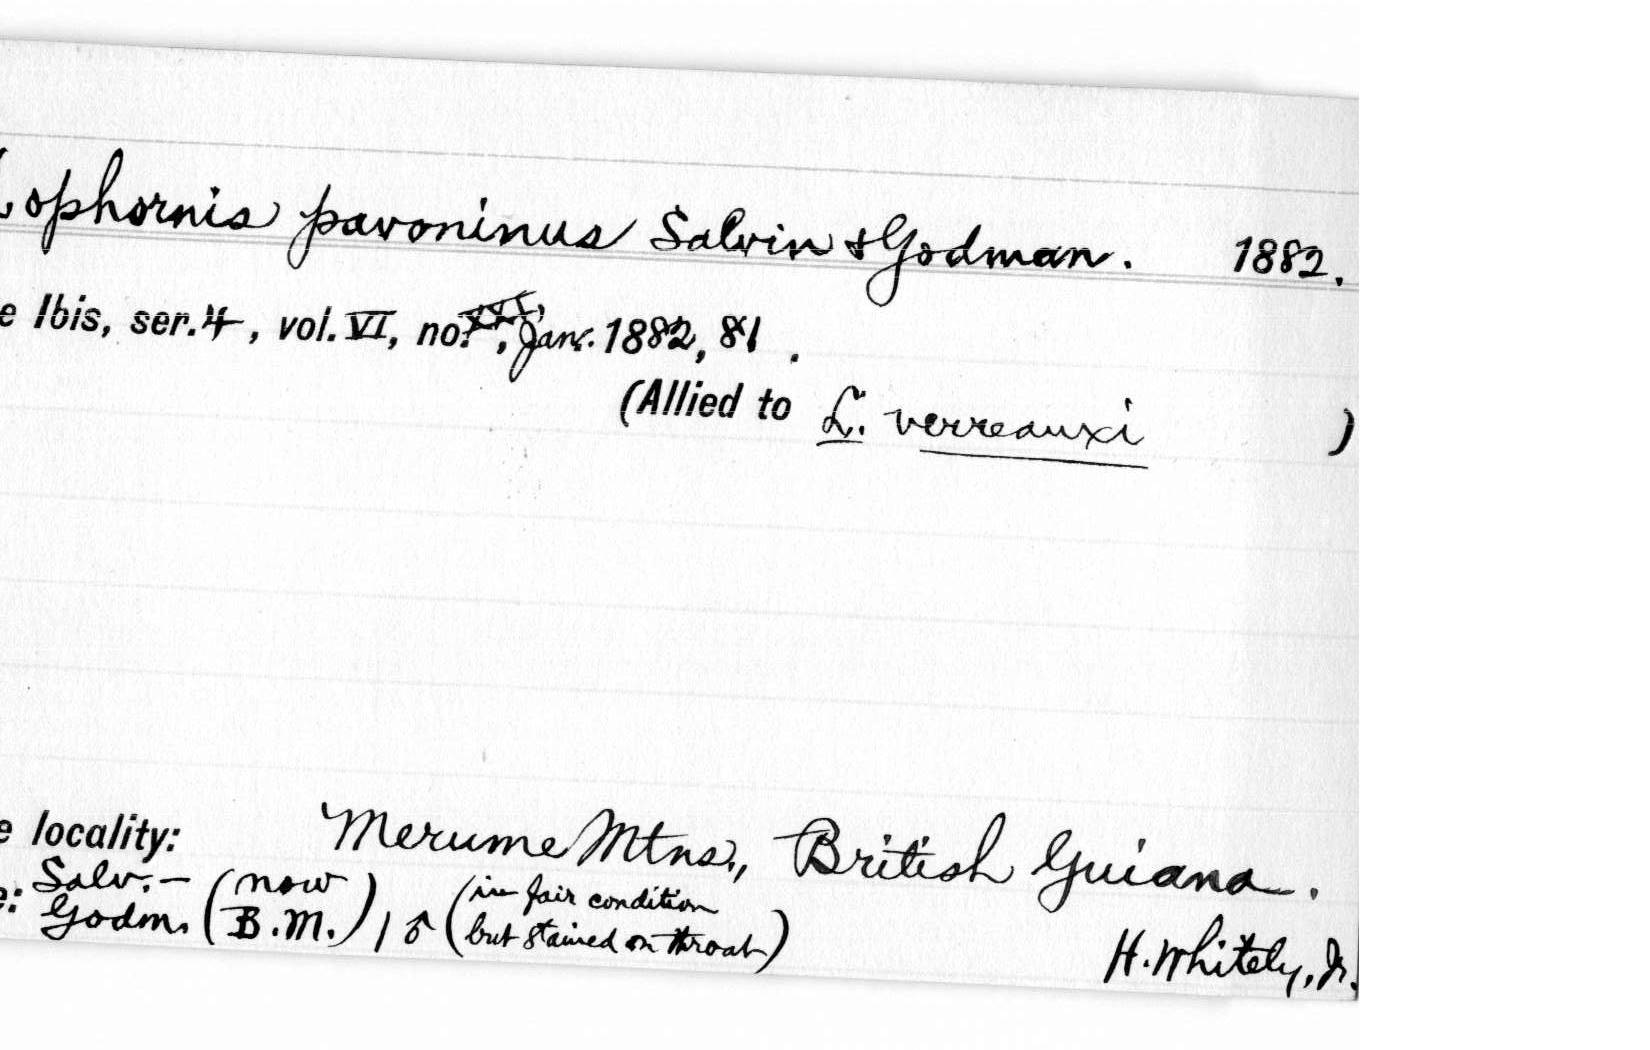 Lophornis pavoninus Salvin & Godman. 1882.
e Ibis, ser. 4, vol. VI, no. XXI, Jan. 1882, 81.
(Allied to L. verreauxi )
e locality: Merume Mtns., British Guiana.
e: Salv.- Godm. (now B.M.) 1 ♂ (in fair condition but stained on throat)
H. Whitely, Jr.